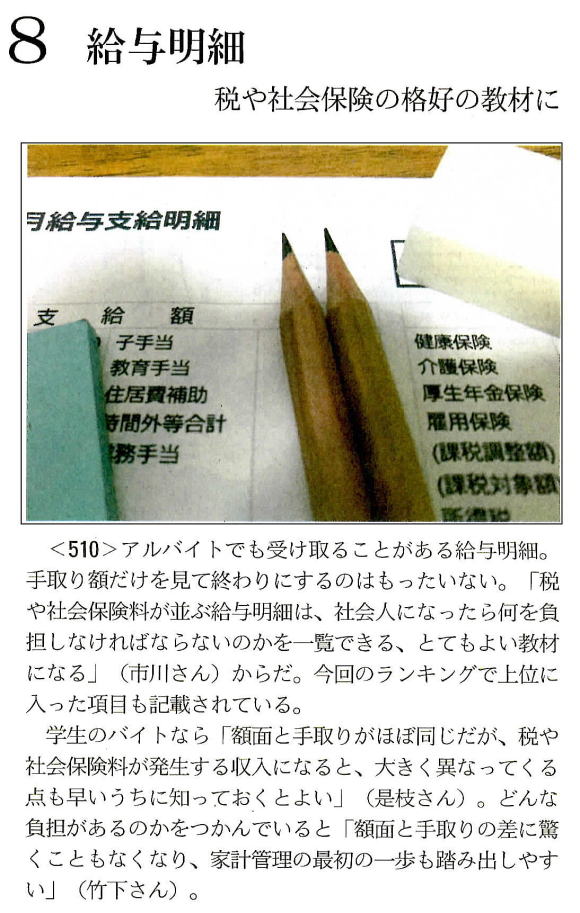 8 給与明細
税や社会保険の格好の教材に
月給与支給明細
支 給 額
子手当
教育手当
住居費補助
時間外等合計
務手当
健康保険
介護保険
厚生年金保険
雇用保険
(課税調整額)
(課税対象額
所得税
＜510＞アルバイトでも受け取ることがある給与明細。
手取り額だけを見て終わりにするのはもったいない。「税
や社会保険料が並ぶ給与明細は、社会人になったら何を負
担しなければならないのかを一覧できる、とてもよい教材
になる」（市川さん）からだ。今回のランキングで上位に
入った項目も記載されている。
学生のバイトなら「額面と手取りがほぼ同じだが、税や
社会保険料が発生する収入になると、大きく異なってくる
点も早いうちに知っておくとよい」（是枝さん）。どんな
負担があるのかをつかんでいると「額面と手取りの差に驚
くこともなくなり、家計管理の最初の一歩も踏み出しやす
い」（竹下さん）。